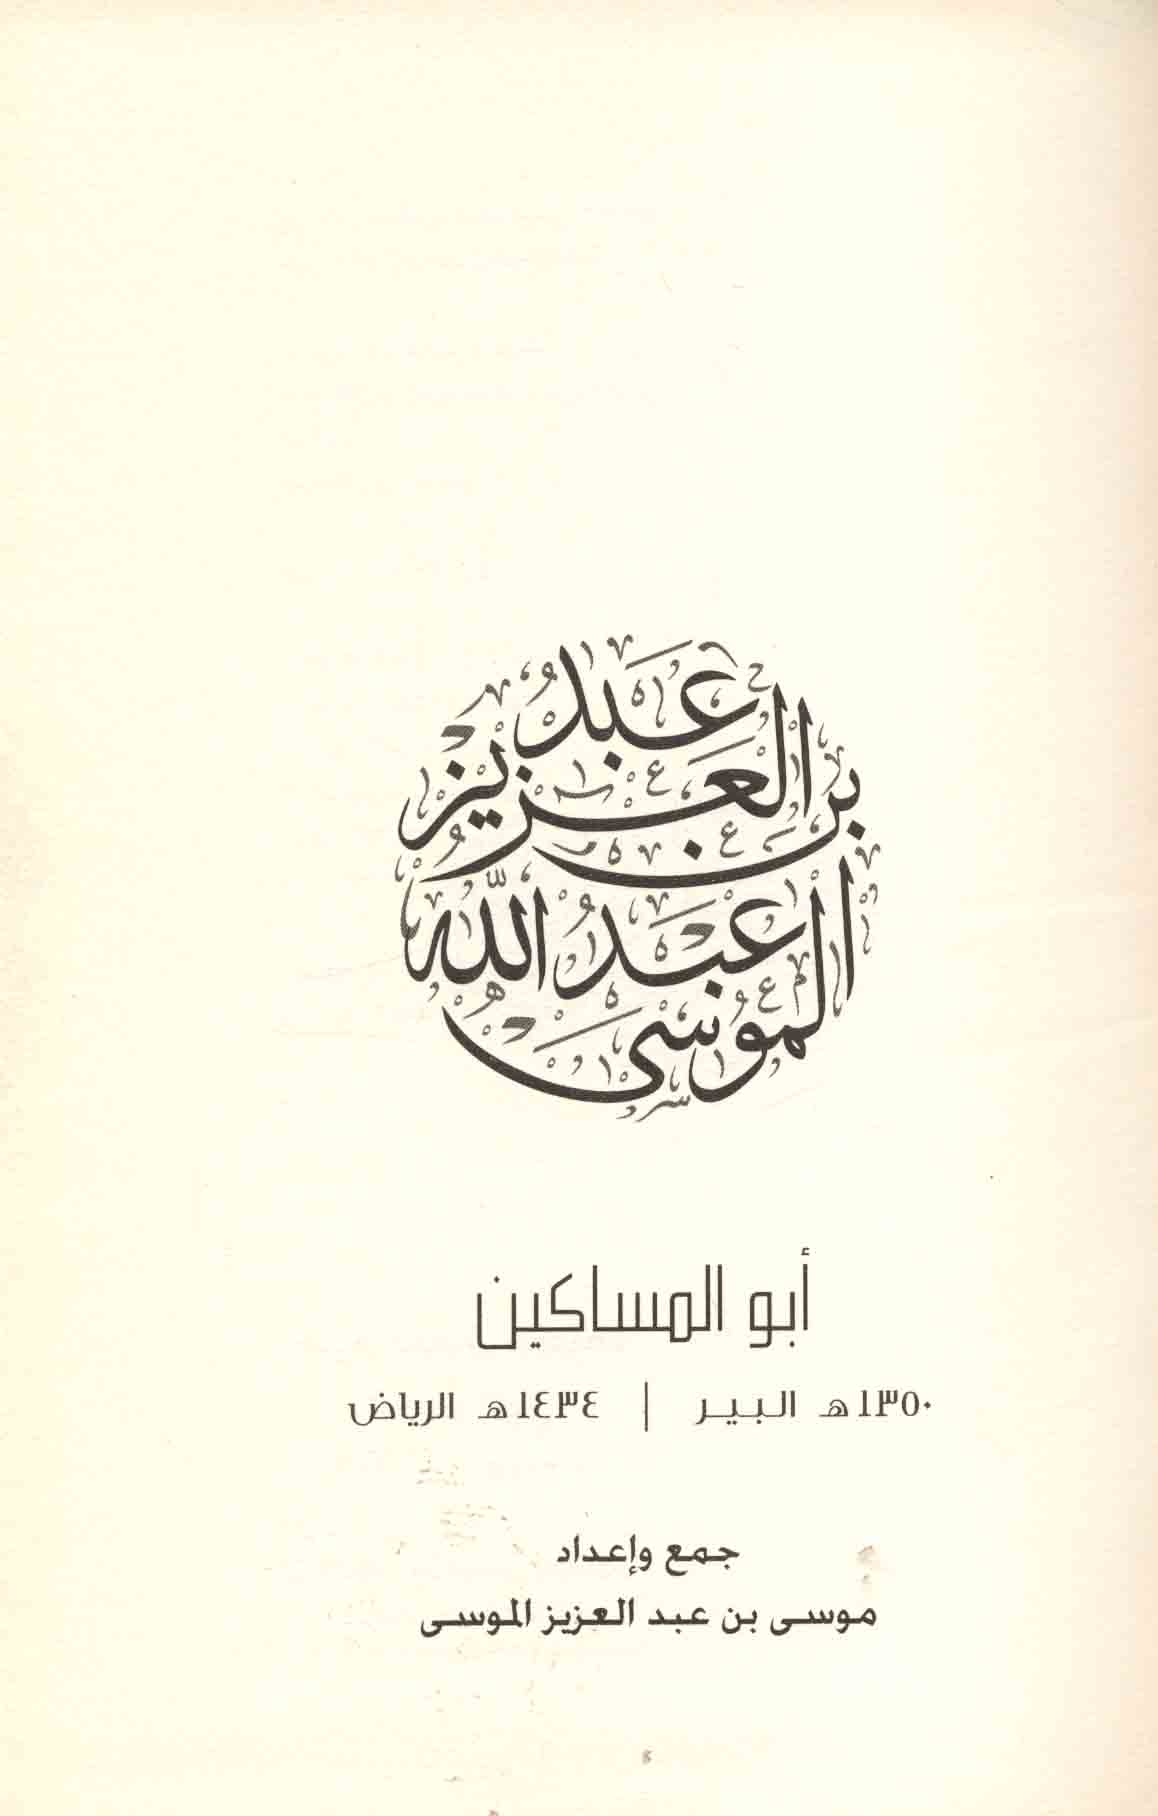 عبد العزيز
بن
عبد الله
الموسى
أبو المساكين
١٣٥٠هـ البير | ١٤٣٤هـ الرياض
جمع وإعداد
موسى بن عبد العزيز الموسى